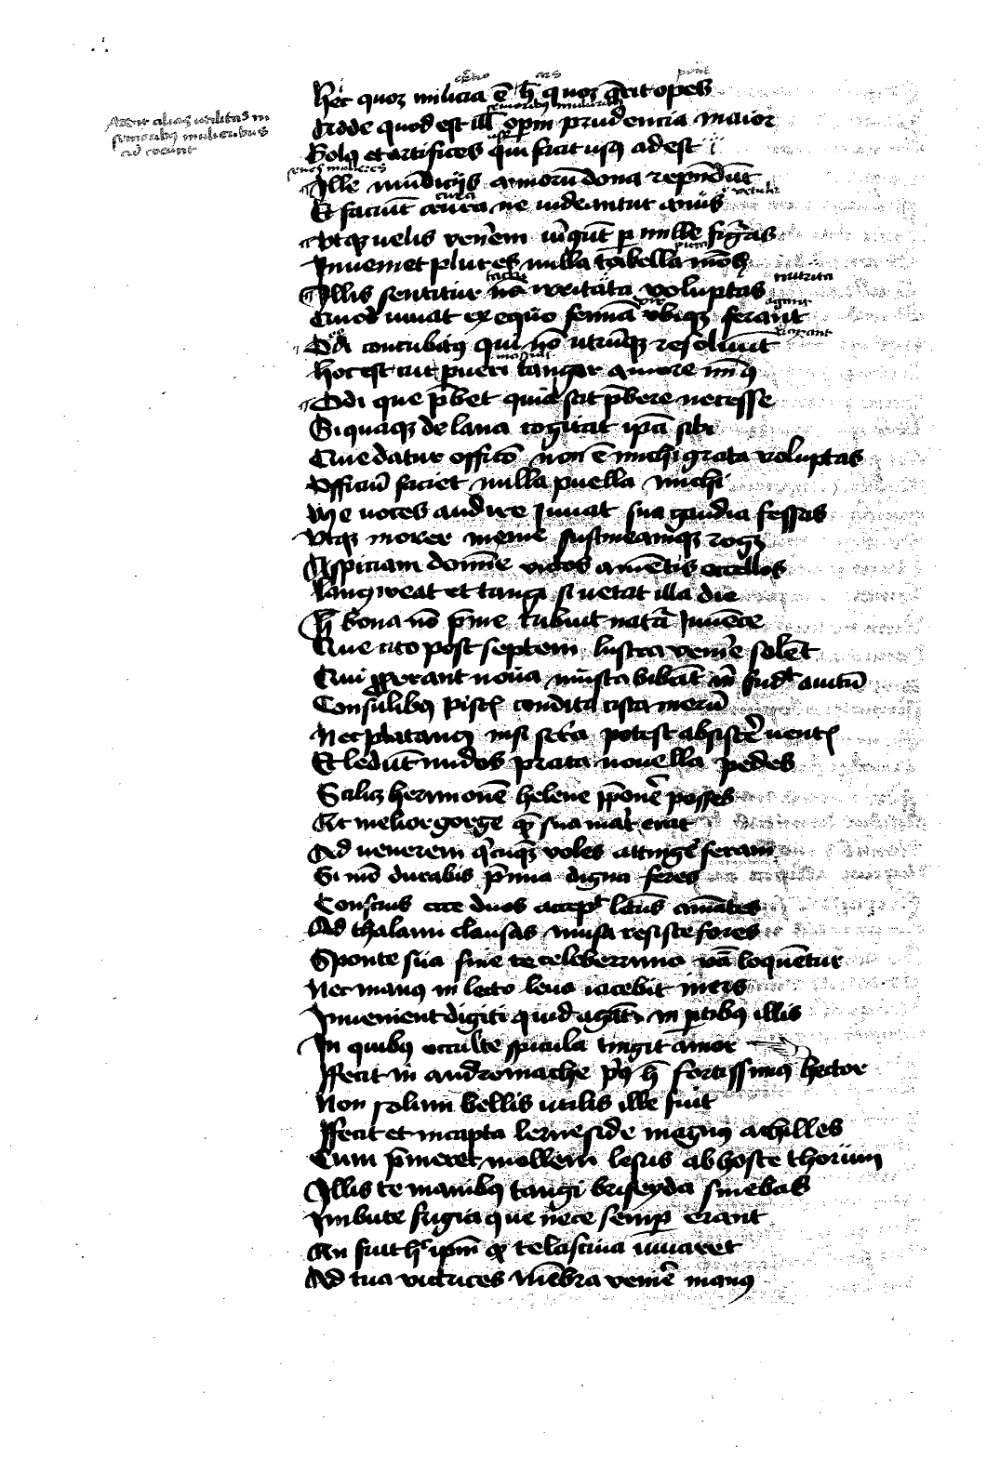 Hec quoꝗ milicia ē h̄ quoꝗ q̄rit opes
Adde quod est ill̄ opm̄ prudencia maior
Solꝰ et artifices qui facit usꝰ adest
Ille mūdiciis annorū dona repn̄dūt
Et faciūt cura ne uideantur anus
Utqꝫ uelis venerem iūgūt p mille figuras
Inueniet plures nulla tabella mōs
Illis sentitur nō irritata voluptas
Quod iuuat ex equo femīa virqꝫ ferant
Odi concubitꝰ qui nō utrūqꝫ resoluūt
Hoc est cur pueri tangar amore minꝰ
Odi que p̄bet quia sit p̄bere necesse
Siccaqꝫ de lana cogitat ip̄a sibi
Que datur officio non ē michi grata voluptas
Officiū faciet nulla puella michi
Me uoces audire iuuat sua gaudia fessas
Utqꝫ morer meme sustineamqꝫ rogꝫ
Aspiciam domine victos amentis ocellos
Langueat et tangi se uetat illa diu
H̄ bona nō p̄me tribuit natura Iuuēte
Que cito post septem lustra venire solēt
Qui properant noua musta bibāt
Consulibꝰ pīscis condita testa merū
Nec platanꝰ nisi sera potest absistere
Et ledūt nudos prata nouella pedes
Scilicꝫ hermionē helene p̄ponere posses
Et melior gorge qꝫ sua mater erat
Ad uenerem quicūqꝫ voles attingere seram
Si mō durabis p̄mia digna feres
Conscius ecce duos accepit lectus amātes
Ad thalami clausas musa resiste fores
Sponte sua sine te celeberrima uba loquētur
Nec manꝰ in lecto leua iacebit iners
Inuenient digiti quid agāt in ptibꝰ illis
In quibꝰ occulte spicula tingit amor
Fecit in andromache priꝰ h̄ fortissimꝰ hector
Non solum bellis utilis ille fuit
Fecit et in capta lerneside magnꝰ achilles
Cum p̄meret mollem lesus ab hoste thorum
Illis te manibꝰ tangi briseyda sinebas
Imbute frigia que nece semp erant
An fuit hoc ipm̄ qꝫ te lasciua iuuaret
Ad tua victrices mēbra venire manꝰ